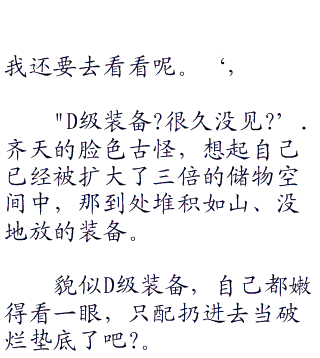 我还要去看看呢。‘，
"D级装备?很久没见?’.
齐天的脸色古怪，想起自己
已经被扩大了三倍的储物空
间中，那到处堆积如山、没
地放的装备。
貌似D级装备，自己都嫩
得看一眼，只配扔进去当破
烂垫底了吧?。